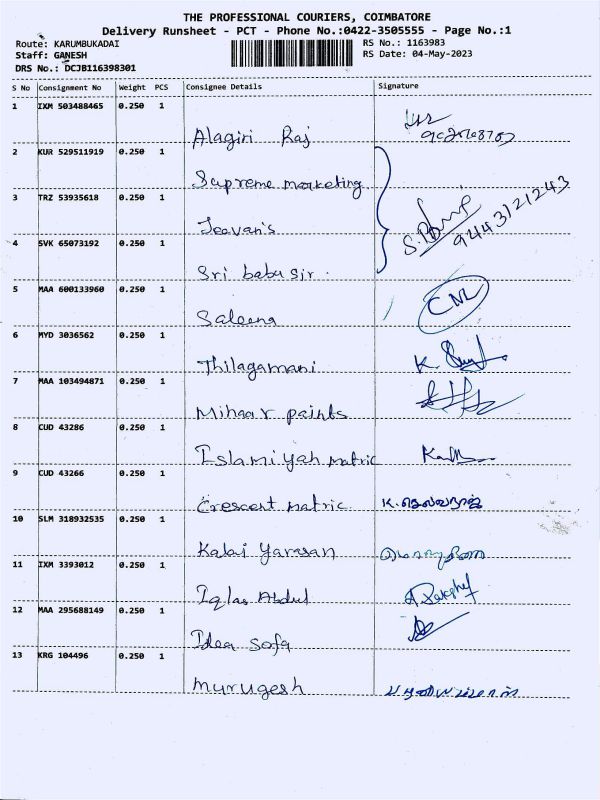 THE PROFESSIONAL COURIERS, COIMBATORE
Delivery Runsheet - PCT - Phone No.:0422-3505555 - Page No.:1
Route: KARUMBUKADAI RS No.: 1163983
Staff: GANESH RS Date: 04-May-2023
DRS No.: DCJB116398301
S No Consignment No Weight PCS Consignee Details Signature
1 IXM 503488465 0.250 1
Alagiri Raj
2 KUR 529511919 0.250 1
Supreme marketing
3 TRZ 53935618 0.250 1
Jeevan's
9443121243
4 SVK 65073192 0.250 1
Sri babu sir.
5 MAA 600133960 0.250 1
Saleena CNL
6 MYD 3036562 0.250 1
Thilagamani K.
7 MAA 103494871 0.250 1
Mihaar paints
8 CUD 43286 0.250 1
Islamiyah matric
9 CUD 43266 0.250 1
Crescent matric
10 SLM 318932535 0.250 1
Kalai Yarasan
11 IXM 3393012 0.250 1
Iqlas Abdul
12 MAA 295688149 0.250 1
Idea sofa
13 KRG 104496 0.250 1
murugesh